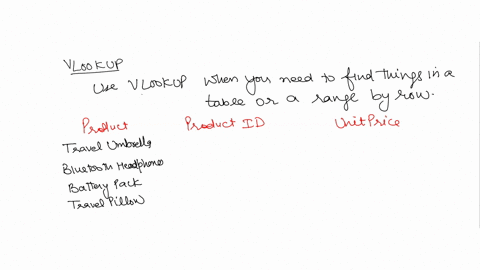 VLOOKUP
Use VLOOKUP when you need to find things in a
table or a range by row.
Product Product ID Unit Price
Travel Umbrella
Bluetooth Headphones
Battery Pack
Travel Pillow